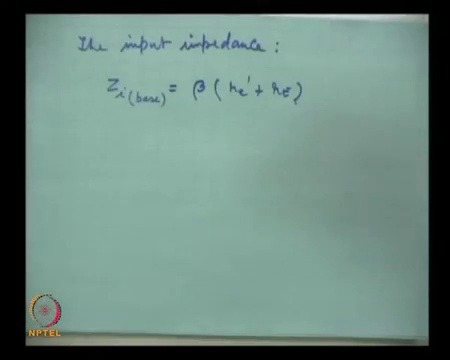 The input impedance :
Z i (base) = β ( re' + rE )
NPTEL